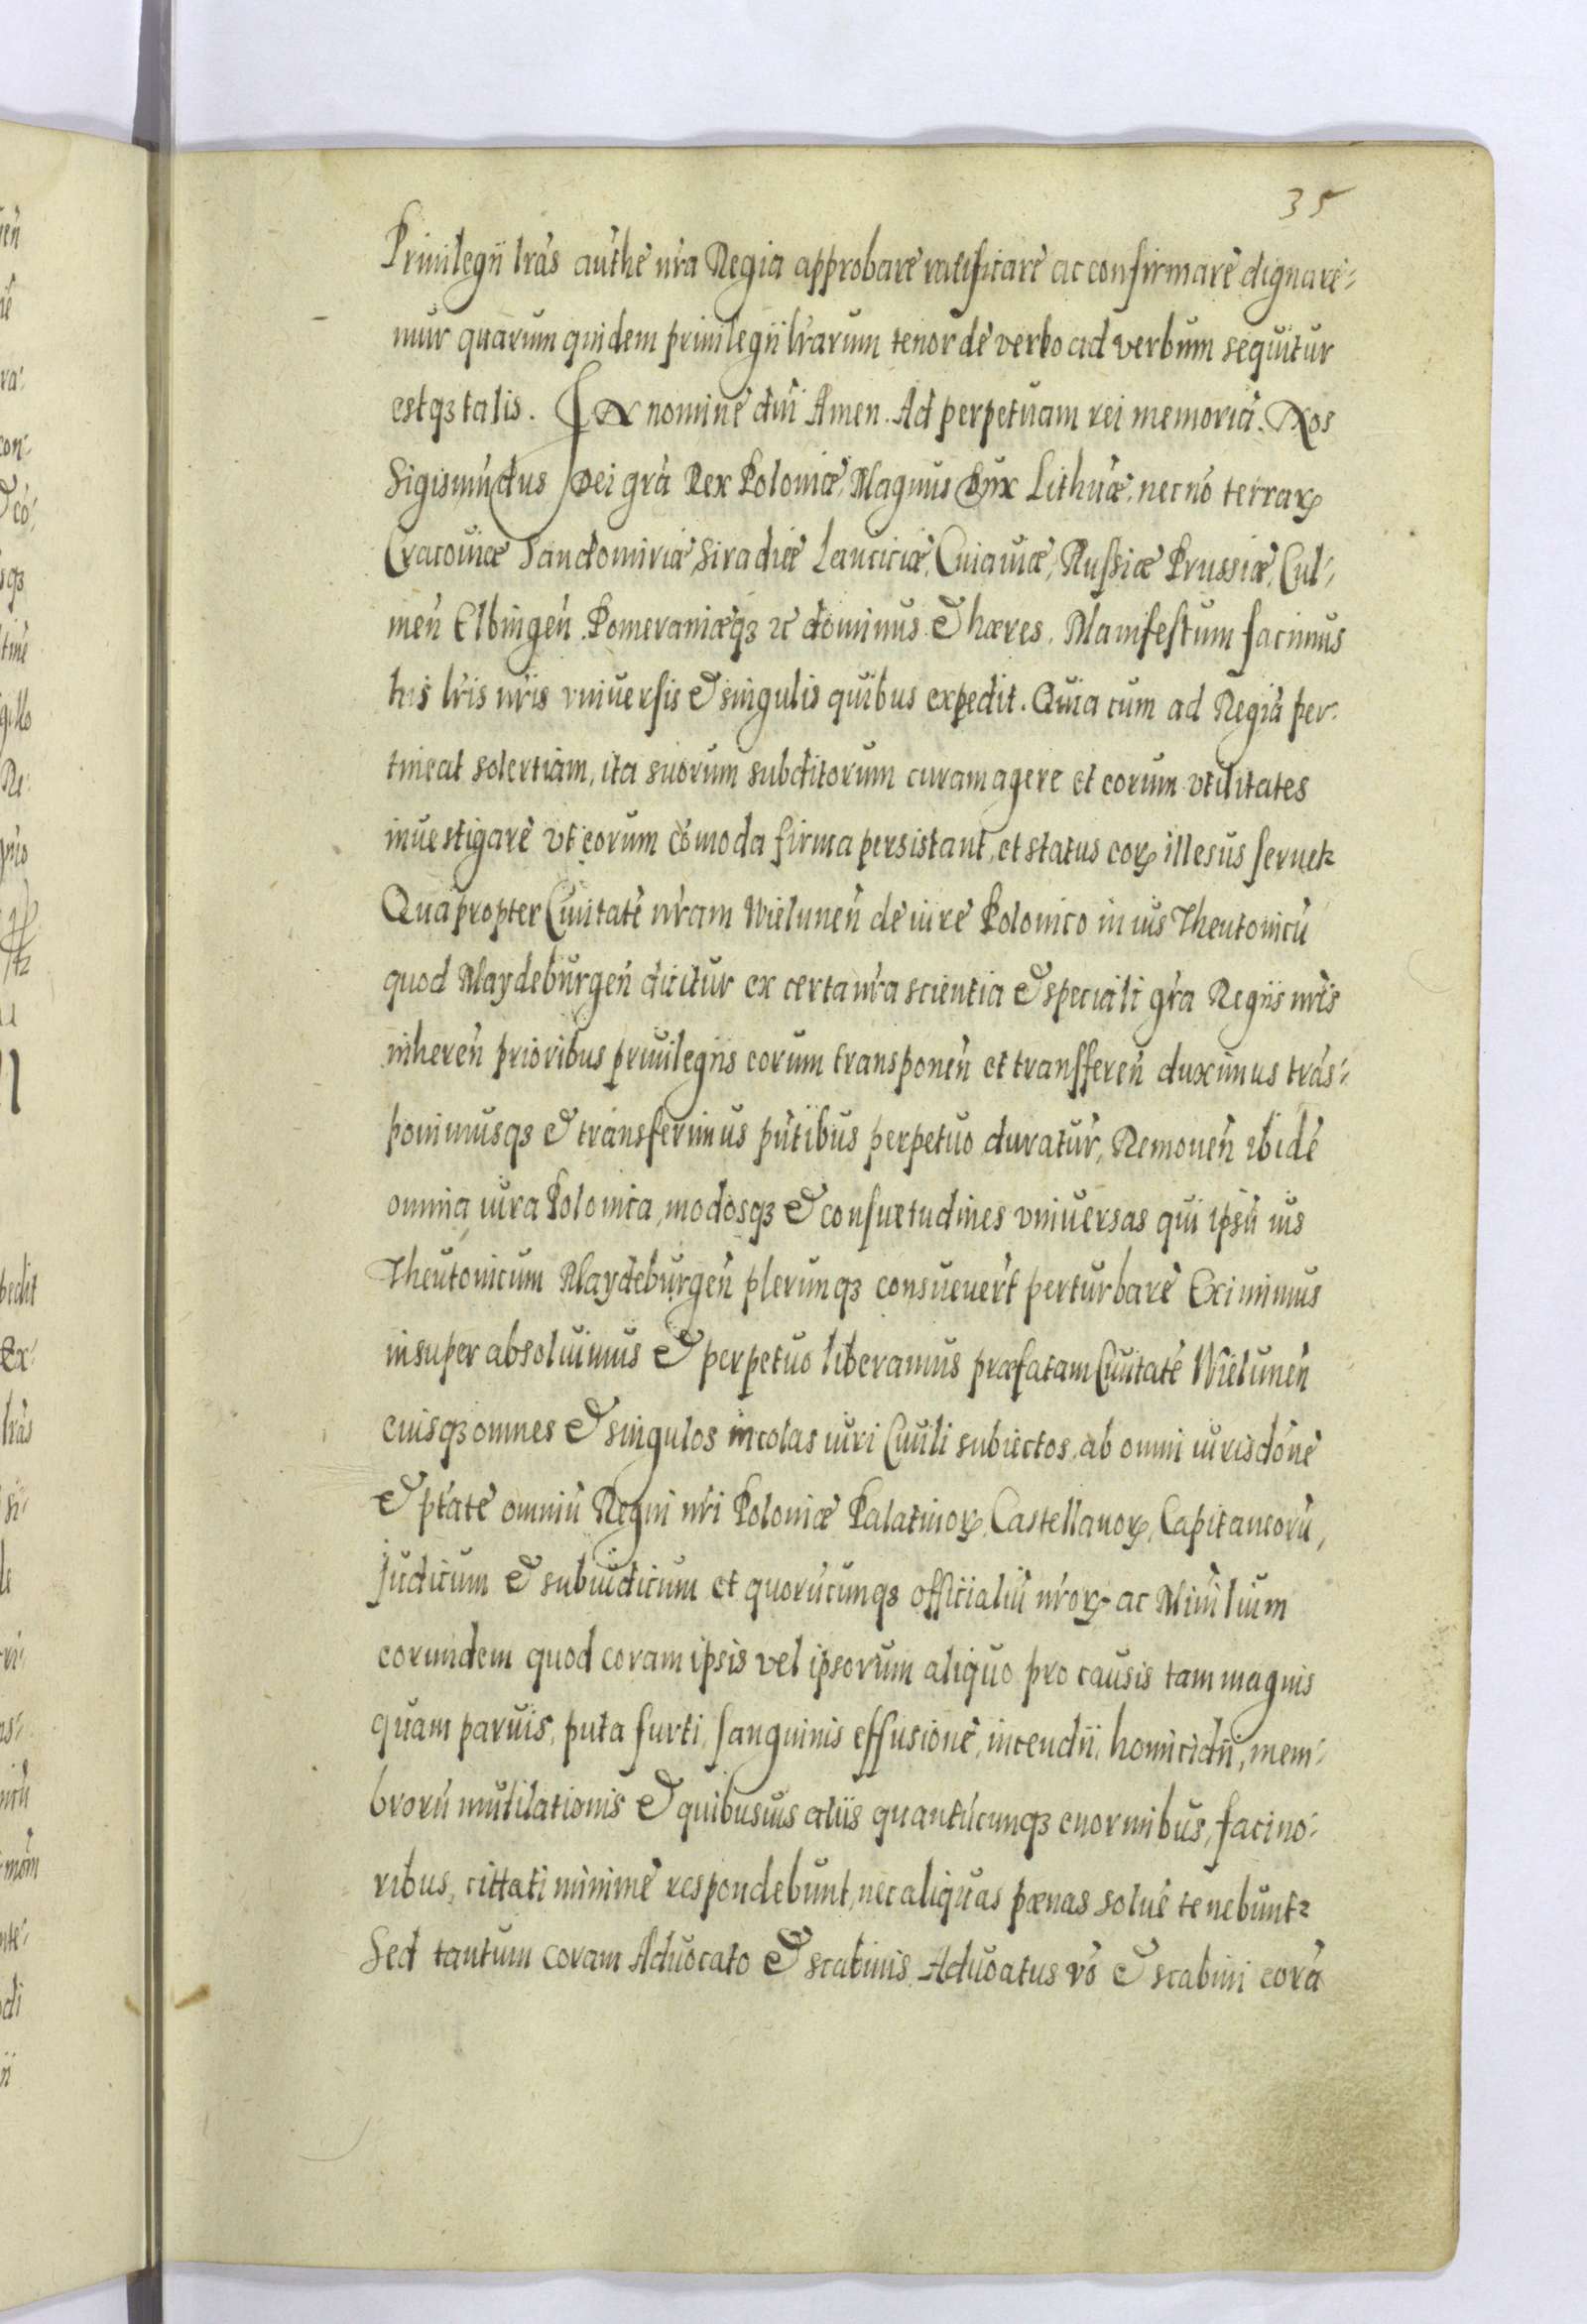 35
Priuilegÿ lrãs authẽ nrã Regia approbare ratificare ac confirmare dignare-
mur quarum quidem priuilegÿ lrãrum tenor de verbo ad verbum sequitur
estqꝫ talis. IN nomine dnĩ Amen. Ad perpetuam rei memoriã. Nos
Sigismũdus Dei grã Rex Poloniæ, Magnus Dux Lithuæ: necnõ terrarꝝ
Cracouiæ Sandomiriæ, Siradiæ Lanciciæ, Cuiauiæ, Russiæ Prussiæ, Cul-
meñ Elbingeñ Pomeraniæqꝫ ꝛc dominus & hæres. Manifestum facimus
his lrĩs nrĩs vniuersis & singulis quibus expedit. Quia cum ad Regiã per-
tineat solertiam, ita suorum subditorum curam agere et eorum vtilitates
inuestigare vt eorum cõmoda firma persistant, et status eorꝝ illesus seruetꝛ
Quapropter Ciuitatẽ nrãm Wieluneñ de iure Polonico in ius Theutonicũ
quod Maydeburgeñ dicitur ex certa nrã scientia & speciali grã Regiis nrĩs
inhereñ prioribus priuilegiis eorum transponeñ et transffereñ duximus trãs-
ponimusqꝫ & transferimus pñtibus perpetuo duratur̃, Remoueñ ibidẽ
omnia iura Polonica, modosqꝫ & consuetudines vniuersas qui ipsũ ius
Theutonicum Maydeburgeñ plerunqꝫ consueuert̃ perturbare Eximimus
insuper absoluimus & perpetuo liberamus præfatam Ciuitatẽ Wieluneñ
eiusqꝫ omnes & singulos incolas iuri Ciuili subiectos, ab omni iurisdõne
& ptãte omniũ Regni nrĩ Poloniæ Palatinorꝝ, Castellanorꝝ, Capitaneorũ,
Judicum & subiudicum et quorũcunqꝫ officialiũ nrõrꝝ ac Minilium
eorundem quod coram ipsis vel ipsorum aliquo pro causis tam magnis
quam paruis, puta furti, sanguinis effusione, incendii, homicidii, mem-
brorũ mutilationis & quibusuis aliis quantũcunqꝫ enormibus, facino-
ribus, cittati minime respondebunt, nec aliquas pænas soluẽ tenebuntꝛ
Sed tantum coram Aduocato & scabinis Aduoatus võ & scabini corã